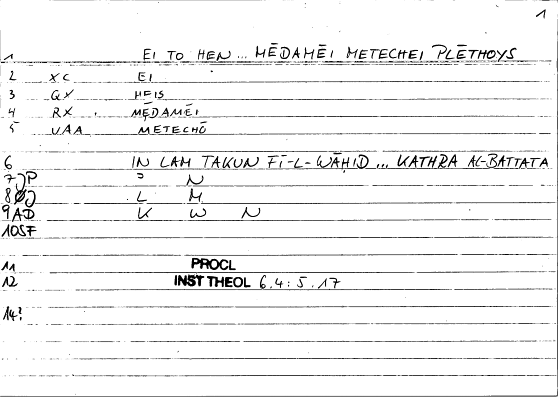 1
1 EI TO HEN ... MĒDAMĒI METECHEI PLĒTHOYS
2 XC EI
3 QX HEIS
4 RX . MĒDAMĒI
5 VAA METECHŌ
6 IN LAM TAKUN FĪ-L-WĀḤID ... KATHRA AL-BATTATA
7 JP ˀ N
8 L M
9 AD K W N
10 SF
11 PROCL
12 INST THEOL 6.4:5.17
14?